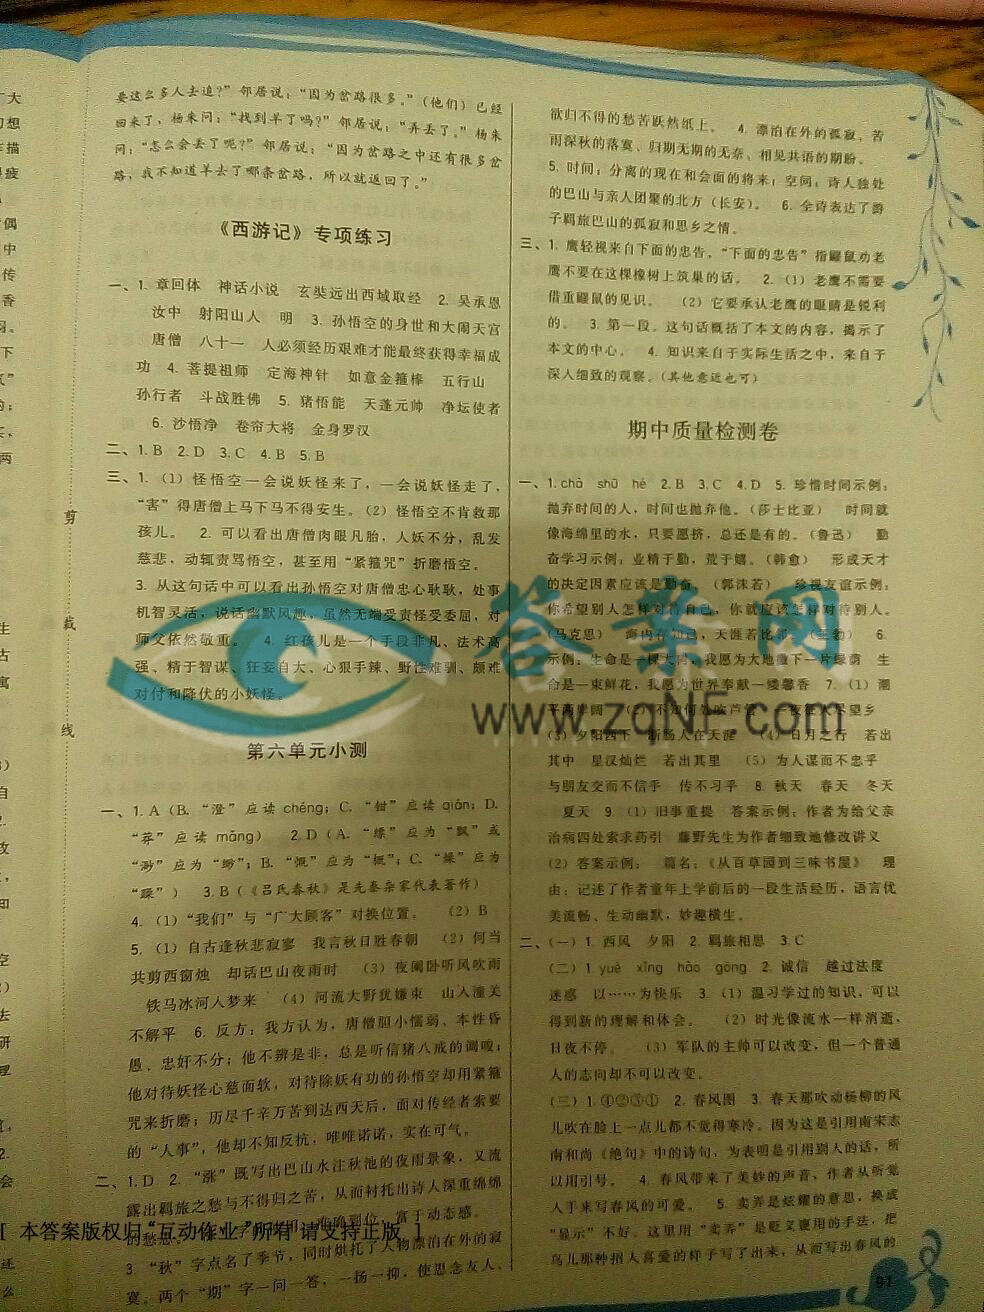 要这么多人去追?”邻居说:“因为岔路很多。”(他们)已经
回来了,杨朱问:“找到羊了吗?”邻居说:“弄丢了。”杨朱
问:“怎么会丢了呢?”邻居说:“因为岔路之中还有很多岔
路,我不知道羊去了哪条岔路,所以就返回了。”
《西游记》专项练习
一、1. 章回体 神话小说 玄奘远出西域取经 2. 吴承恩
汝中 射阳山人 明 3. 孙悟空的身世和大闹天宫
唐僧 八十一 人必须经历艰难才能最终获得幸福成
功 4. 菩提祖师 定海神针 如意金箍棒 五行山
孙行者 斗战胜佛 5. 猪悟能 天蓬元帅 净坛使者
6. 沙悟净 卷帘大将 金身罗汉
二、1. B 2. D 3. C 4. B 5. B
三、1. (1) 怪悟空一会说妖怪来了,一会说妖怪走了,
“害”得唐僧上马下马不得安生。(2) 怪悟空不肯救那
孩儿。 2. 可以看出唐僧肉眼凡胎,人妖不分,乱发
慈悲,动辄责骂悟空,甚至用“紧箍咒”折磨悟空。
3. 从这句话中可以看出孙悟空对唐僧忠心耿耿,处事
机智灵活,说话幽默风趣,虽然无端受责怪受委屈,对
师父依然敬重。 4. 红孩儿是一个手段非凡、法术高
强、精于智谋、狂妄自大、心狠手辣、野性难驯、颇难
对付和降伏的小妖怪。
第六单元小测
一、1. A (B. “澄”应读 chéng; C. “钳”应读 qián; D.
“莽”应读 mǎng) 2. D (A. “缥”应为“飘”或
“渺”应为“缈”; B. “慨”应为“概”; C. “操”应为
“躁”) 3. B (《吕氏春秋》是先秦杂家代表著作)
4. (1)“我们”与“广大顾客”对换位置。 (2) B
5. (1) 自古逢秋悲寂寥 我言秋日胜春朝 (2) 何当
共剪西窗烛 却话巴山夜雨时 (3) 夜阑卧听风吹雨
铁马冰河入梦来 (4) 河流大野犹嫌束 山入潼关
不解平 6. 反方:我方认为,唐僧胆小懦弱、本性昏
愚、忠奸不分;他不辨是非,总是听信猪八戒的调唆;
他对待妖怪心慈面软,对待除妖有功的孙悟空却用紧箍
咒来折磨;历尽千辛万苦到达西天后,面对传经者索要
的“人事”,他却不知反抗,唯唯诺诺,实在可气。
二、1. D 2. “涨”既写出巴山水注秋池的夜雨景象,又流
露出羁旅之愁与不得归之苦,从而衬托出诗人深重绵绵
的愁思。
[ 本答案版权归“互动作业”所有 请支持正版 ]
3. “秋”字点名了季节,同时烘托了人物漂泊在外的寂
寞。两个“期”字一问一答,一扬一抑,使思念友人、
欲归不得的愁苦跃然纸上。 4. 漂泊在外的孤寂、苦
雨深秋的落寞、归期无期的无奈、相见共语的期盼。
5. 时间:分离的现在和会面的将来;空间:诗人独处
的巴山与亲人团聚的北方(长安)。 6. 全诗表达了游
子羁旅巴山的孤寂和思乡之情。
三、1. 鹰轻视来自下面的忠告。“下面的忠告”指鼹鼠劝老
鹰不要在这棵橡树上筑巢的话。 2. (1) 老鹰不需要
借重鼹鼠的见识。 (2) 它要承认老鹰的眼睛是锐利
的。 3. 第一段。这句话概括了本文的内容,揭示了
本文的中心。 4. 知识来自于实际生活之中,来自于
深入细致的观察。(其他意近也可)
期中质量检测卷
一、1. chà shū hé 2. B 3. C 4. D 5. 珍惜时间示例:
抛弃时间的人,时间也抛弃他。(莎士比亚) 时间就
像海绵里的水,只要愿挤,总还是有的。(鲁迅) 勤
奋学习示例:业精于勤,荒于嬉。(韩愈) 形成天才
的决定因素应该是勤奋。(郭沫若) 珍视友谊示例:
你希望别人怎样对待自己,你就应该怎样对待别人。
(马克思) 海内存知己,天涯若比邻。(王勃) 6.
示例:生命是一棵大树,我愿为大地撒下一片绿荫 生
命是一束鲜花,我愿为世界奉献一缕馨香 7. (1) 潮
平两岸阔 (2) 不知何处吹芦管 一夜征人尽望乡
(3) 夕阳西下 断肠人在天涯 (4) 日月之行 若出
其中 星汉灿烂 若出其里 (5) 为人谋而不忠乎
与朋友交而不信乎 传不习乎 8. 秋天 春天 冬天
夏天 9. (1) 旧事重提 答案示例:作者为给父亲
治病四处索求药引 藤野先生为作者细致地修改讲义
(2) 答案示例: 篇名:《从百草园到三味书屋》 理
由:记述了作者童年上学前后的一段生活经历,语言优
美流畅、生动幽默,妙趣横生。
二、(一) 1. 西风 夕阳 2. 羁旅相思 3. C
(二) 1. yuè xǐng hào gōng 2. 诚信 越过法度
迷惑 以……为快乐 3. (1) 温习学过的知识,可以
得到新的理解和体会。 (2) 时光像流水一样消逝,
日夜不停。 (3) 军队的主帅可以改变,但一个普通
人的志向却不可以改变。
(三) 1. ④②③① 2. 春风图 3. 春天那吹动杨柳的风
儿吹在脸上一点儿都不觉得寒冷。因为这是引用南宋志
南和尚《绝句》中的诗句,为表明是引用别人的话,所
以用引号。 4. 春风带来了美妙的声音,作者从听觉
入手来写春风的可爱。 5. 卖弄是炫耀的意思,换成
“显示”不好。这里用“卖弄”是贬义褒用的手法,把
鸟儿那种招人喜爱的样子写了出来,从而写出春风的
91
剪
裁
线
答案网
www.zqNF.com